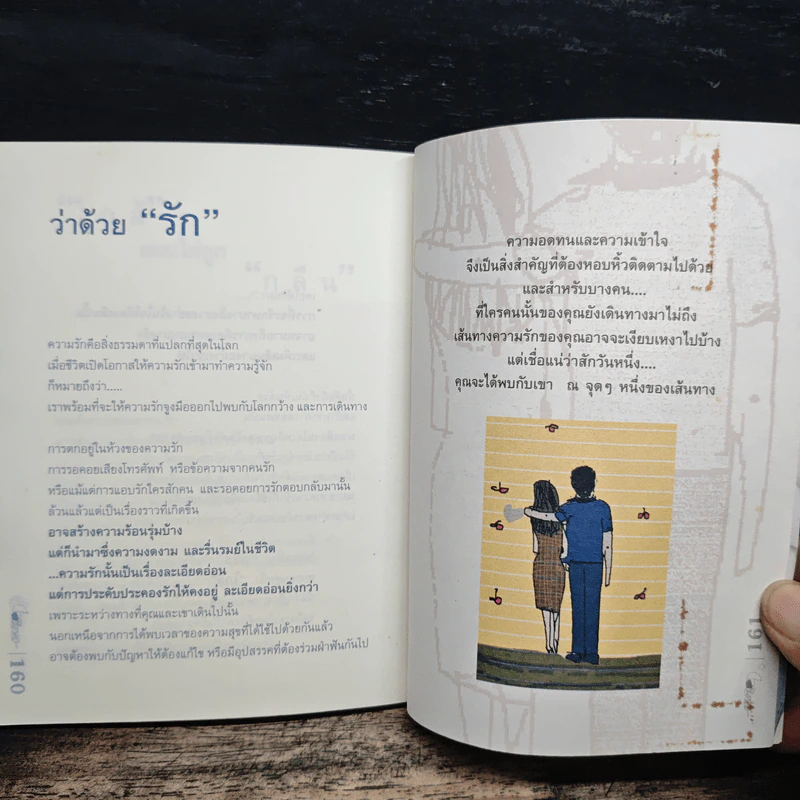 ว่าด้วย “รัก”
ความรักคือสิ่งธรรมดาที่แปลกที่สุดในโลก
เมื่อชีวิตเปิดโอกาสให้ความรักเข้ามาทำความรู้จัก
ก็หมายถึงว่า.....
เราพร้อมที่จะให้ความรักจูงมือออกไปพบกับโลกกว้าง และการเดินทาง
การตกอยู่ในห้วงของความรัก
การรอคอยเสียงโทรศัพท์ หรือข้อความจากคนรัก
หรือแม้แต่การแอบรักใครสักคน และรอคอยการรักตอบกลับมานั้น
ล้วนแล้วแต่เป็นเรื่องราวที่เกิดขึ้น
อาจสร้างความร้อนรุ่มบ้าง
แต่ก็นำมาซึ่งความงดงาม และรื่นรมย์ในชีวิต
...ความรักนั้นเป็นเรื่องละเอียดอ่อน
แต่การประคับประคองรักให้คงอยู่ ละเอียดอ่อนยิ่งกว่า
เพราะระหว่างทางที่คุณและเขาเดินไปนั้น
นอกเหนือจากการได้พบเวลาของความสุขที่ได้ใช้ไปด้วยกันแล้ว
อาจต้องพบกับปัญหาให้ต้องแก้ไข หรือมีอุปสรรคที่ต้องร่วมฝ่าฟันกันไป
160
ความอดทนและความเข้าใจ
จึงเป็นสิ่งสำคัญที่ต้องหอบหิ้วติดตามไปด้วย
และสำหรับบางคน....
ที่ใครคนนั้นของคุณยังเดินทางมาไม่ถึง
เส้นทางความรักของคุณอาจจะเงียบเหงาไปบ้าง
แต่เชื่อแน่ว่าสักวันหนึ่ง....
คุณจะได้พบกับเขา ณ จุดๆ หนึ่งของเส้นทาง
161